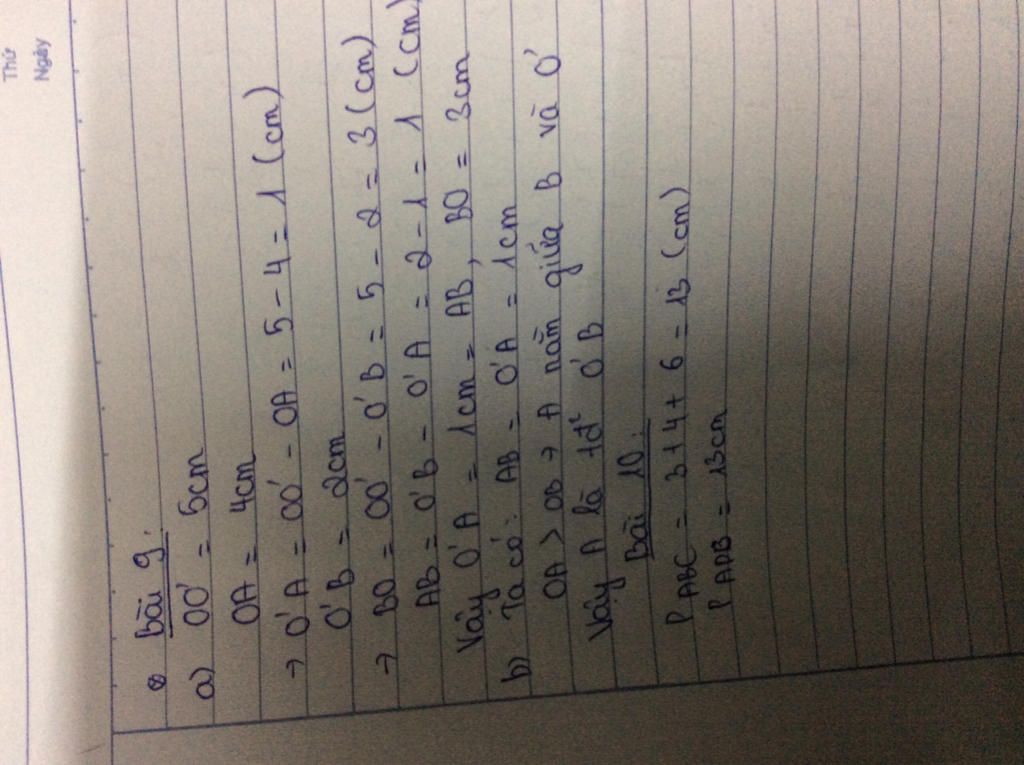 Thứ
Ngày
⊗ Bài 9.
a) OO' = 5cm
OA = 4cm
→ O'A = OO' - OA = 5 - 4 = 1 (cm)
O'B = 2cm
→ BO = OO' - O'B = 5 - 2 = 3 (cm)
AB = O'B - O'A = 2 - 1 = 1 (cm)
Vậy O'A = 1cm = AB, BO = 3cm
b) Ta có: AB = O'A = 1cm
OA > OB → A nằm giữa B và O'
Vậy A là tđ' O'B
Bài 10:
PABC = 3+4+6 = 13 (cm)
PADB = 13cm